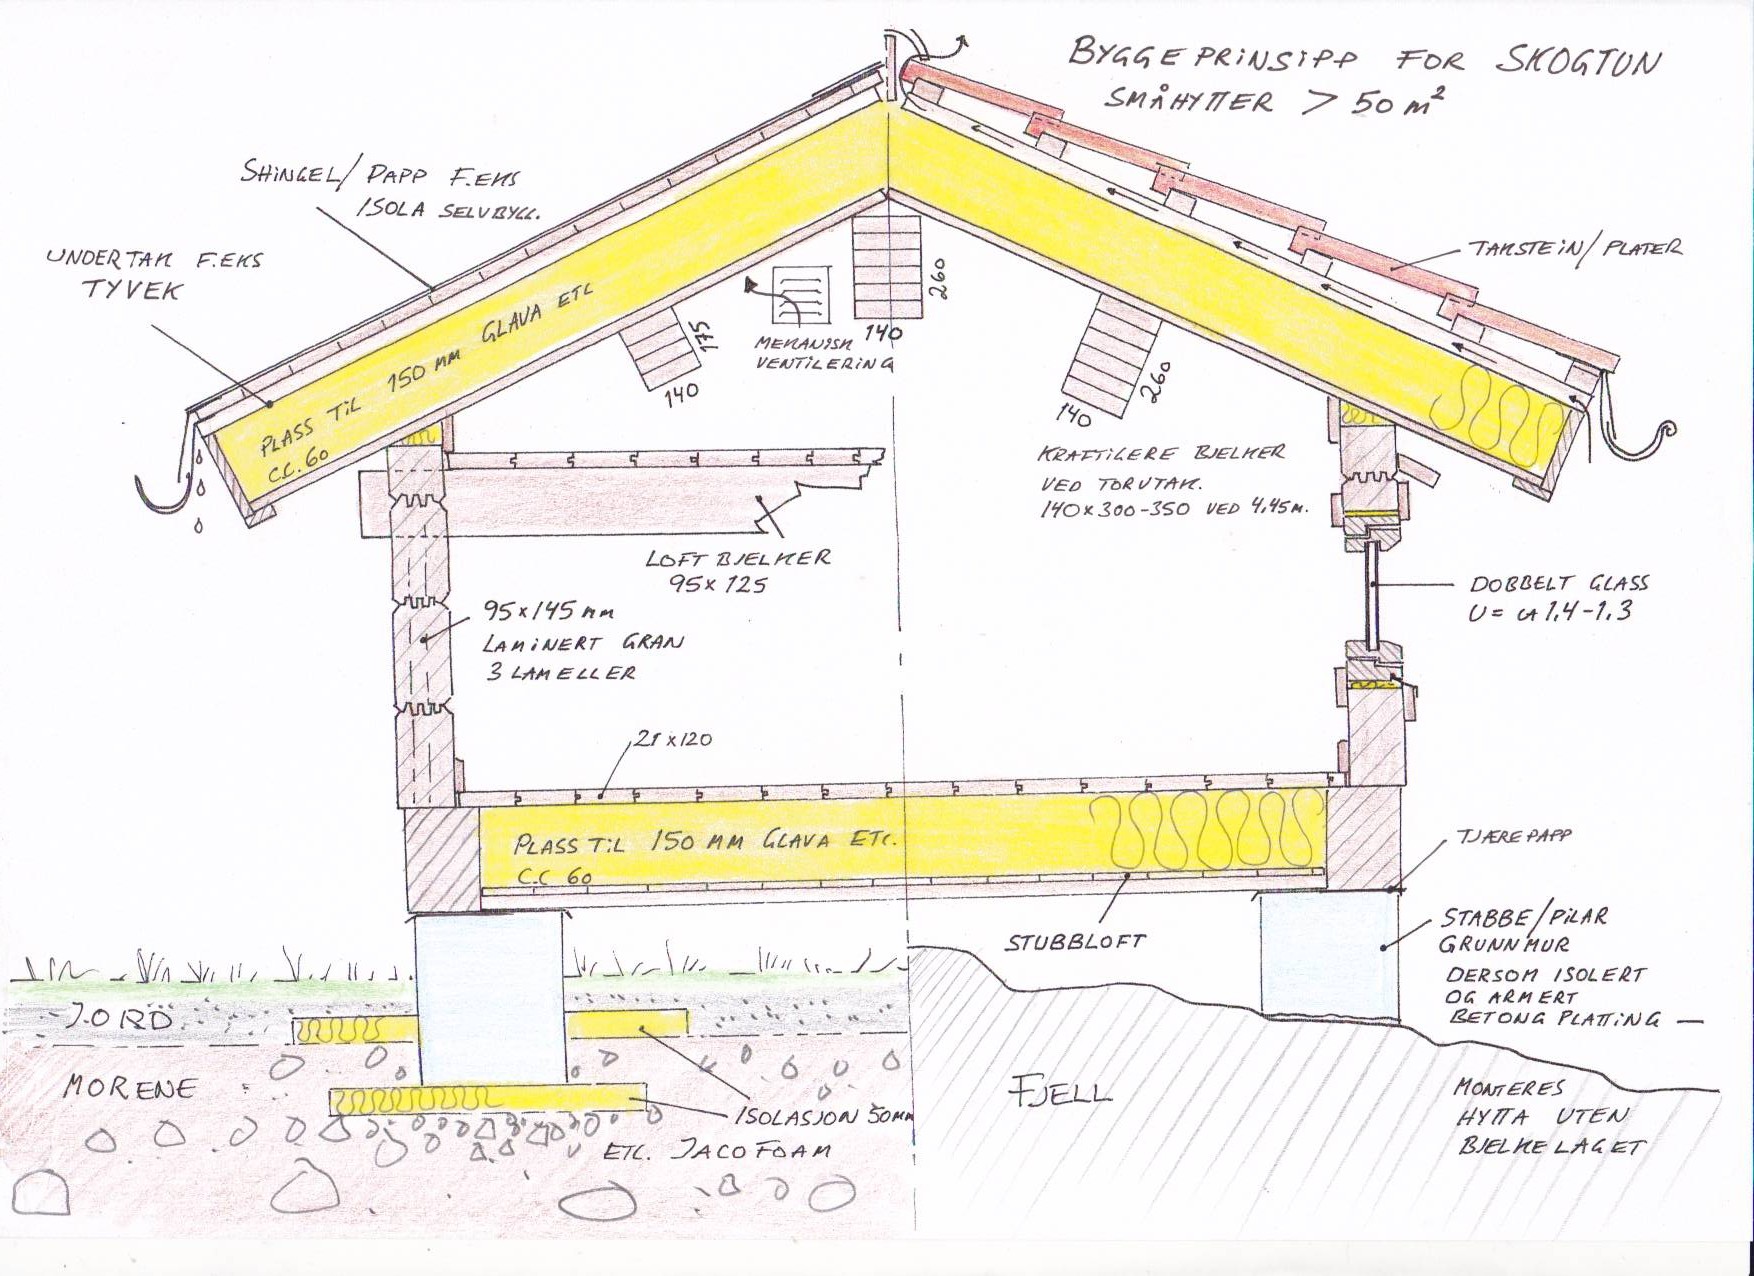 BYGGEPRINSIPP FOR SKOGTUN
SMÅHYTTER > 50 m²
SHINGEL/PAPP F.EKS
ISOLA SELVBYGG.
UNDERTAK F.EKS
TYVEK
TAKSTEIN/PLATER
PLASS TIL 150 MM GLAVA ETC
C.C. 60
175
140
MEKANISK
VENTILERING
260
140
260
140
KRAFTIGERE BJELKER
VED TORVTAK.
140x300-350 VED 4,45M.
LOFT BJELKER
95x125
95x145 mm
LAMINERT GRAN
3 LAMELLER
DOBBELT GLASS
U= ca 1.4-1.3
21x120
PLASS TIL 150 MM GLAVA ETC.
C.C 60
TJÆREPAPP
STUBBLOFT
STABBE/PILAR
GRUNNMUR
DERSOM ISOLERT
OG ARMERT
BETONG PLATTING —
MONTERES
HYTTA UTEN
BJELKELAGET
JORD
MORENE
FJELL
ISOLASJON 50mm
ETC. JACOFOAM